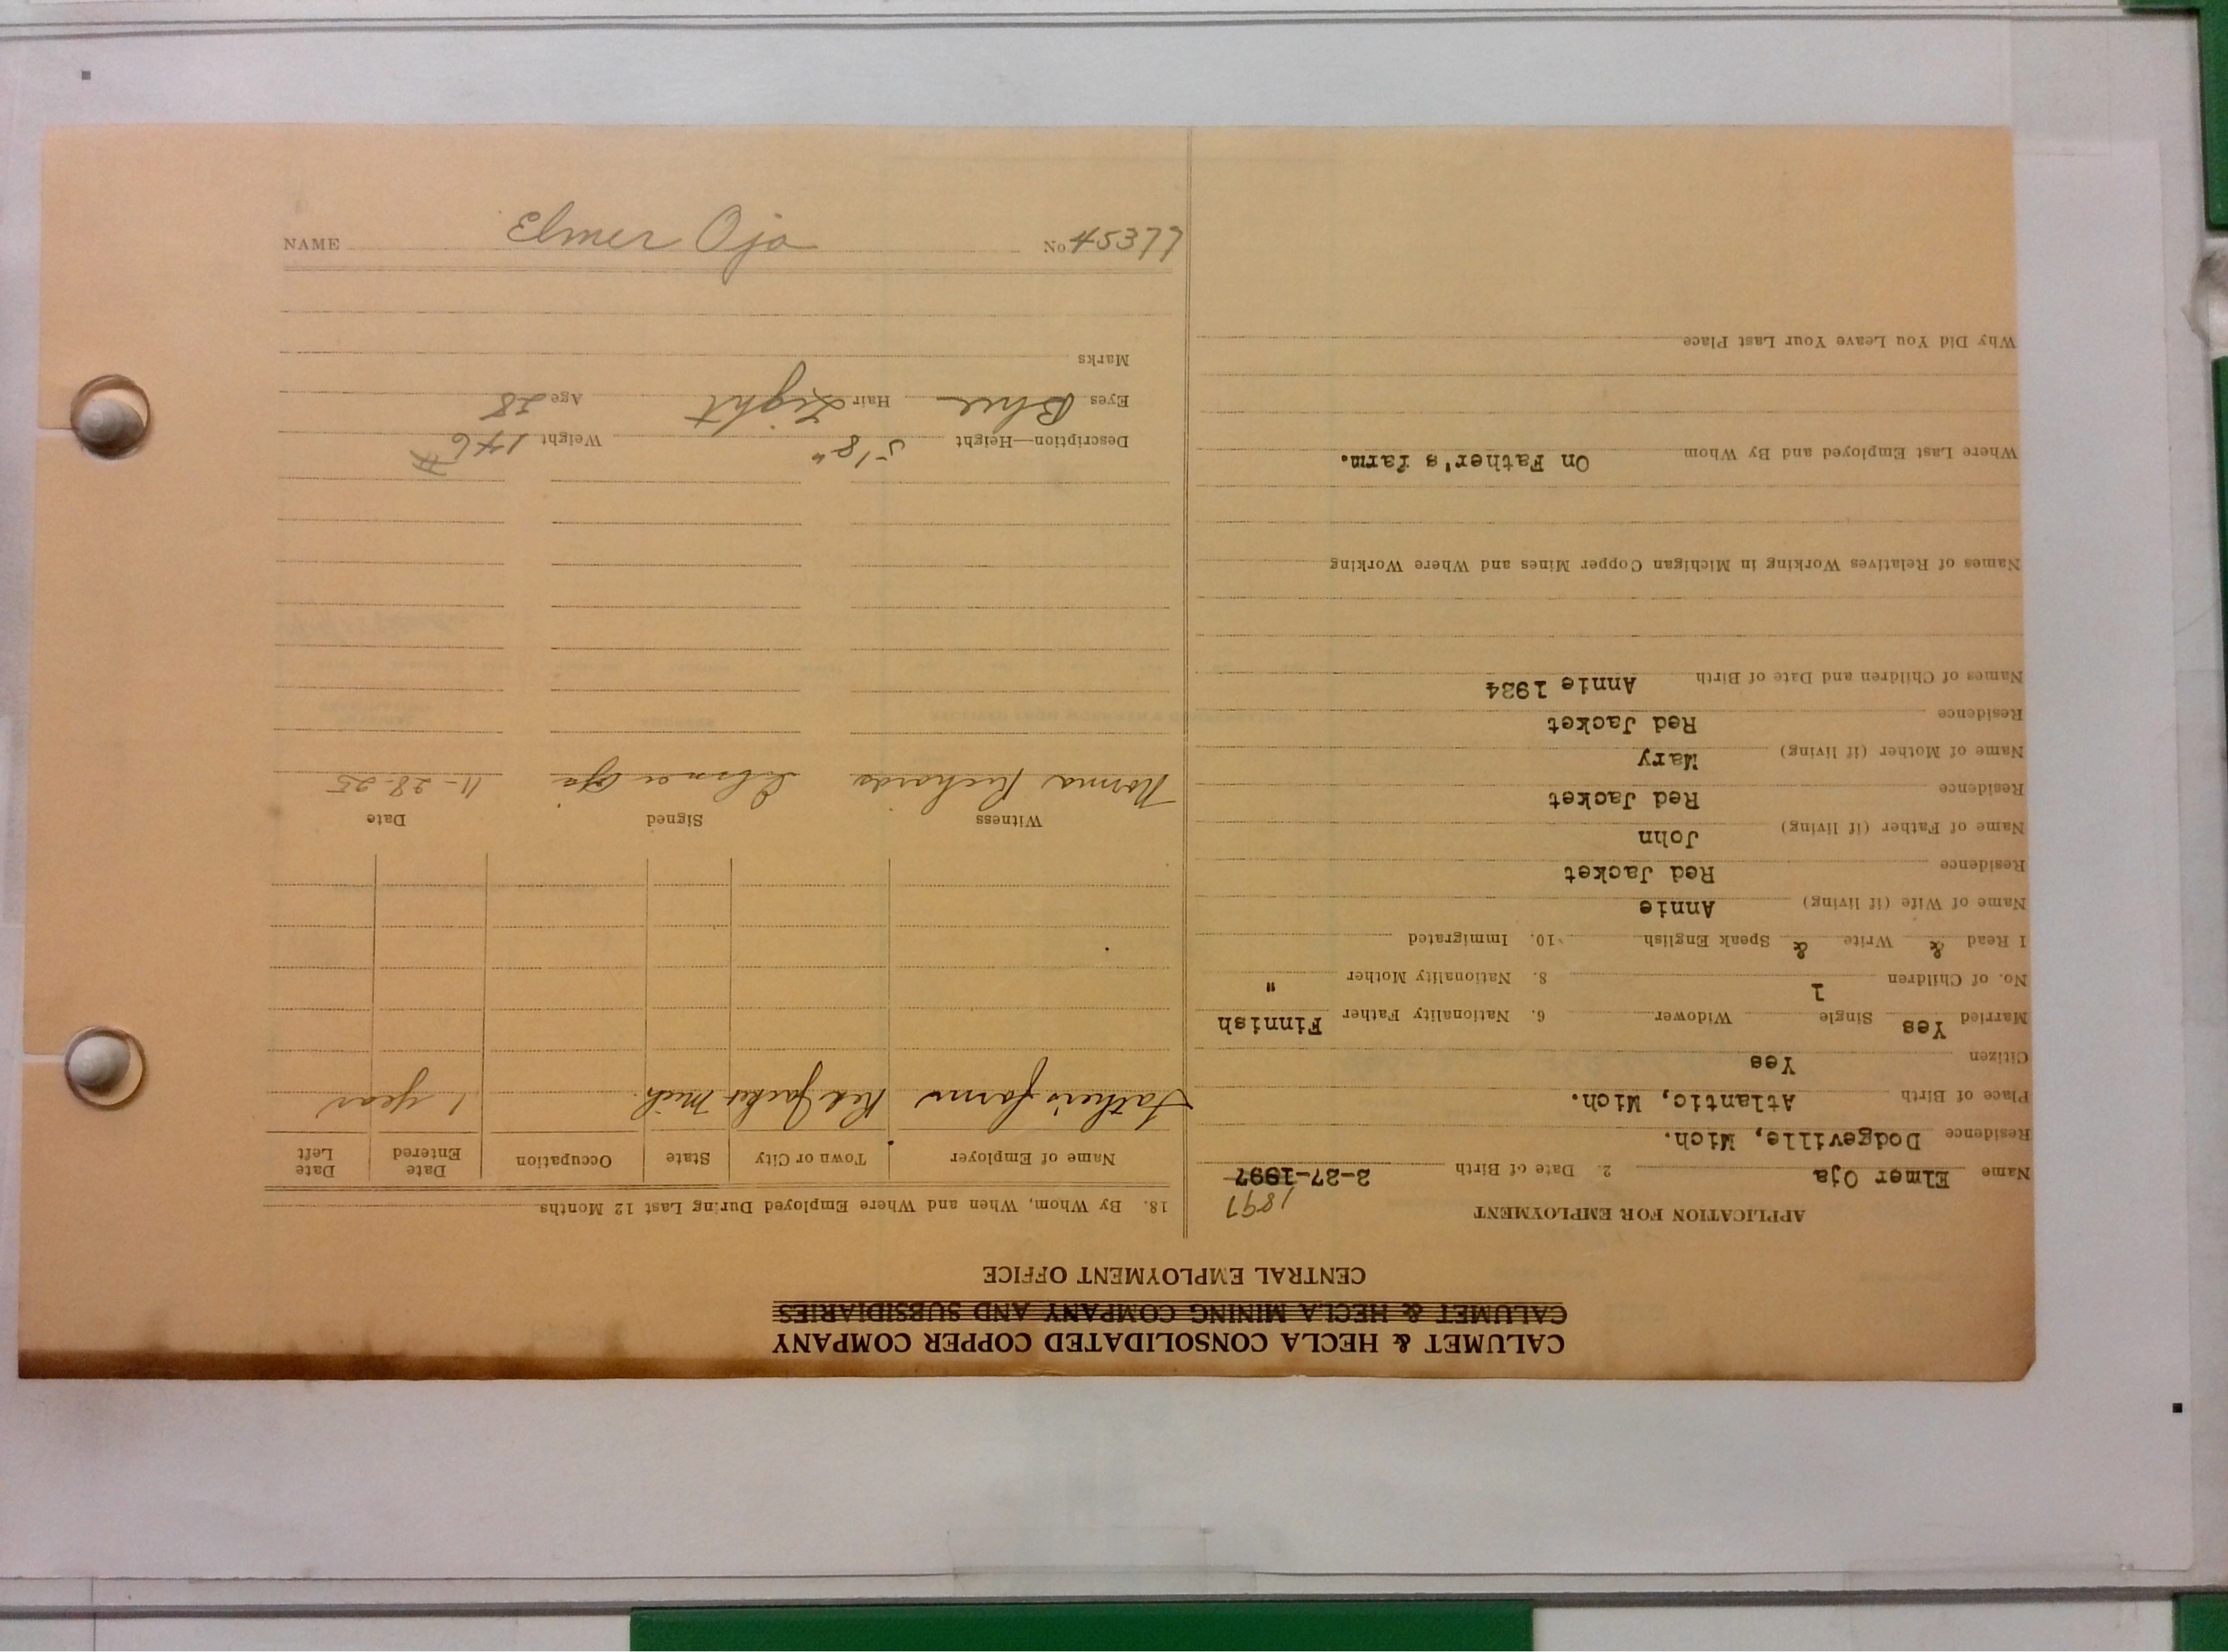 CALUMET & HECLA CONSOLIDATED COPPER COMPANY
CALUMET & HECLA MINING COMPANY AND SUBSIDIARIES
CENTRAL EMPLOYMENT OFFICE
APPLICATION FOR EMPLOYMENT
1897
Name Elmer Oja 2. Date of Birth 3-27-1997
Residence Dodgeville, Mich.
Place of Birth Atlantic, Mich.
Citizen Yes
Married Yes Single Widower 6. Nationality Father Finnish
No. of Children 1 8. Nationality Mother "
I Read & Write & Speak English 10. Immigrated
Name of Wife (if living) Annie
Residence Red Jacket
Name of Father (if living) John
Residence Red Jacket
Name of Mother (if living) Mary
Residence Red Jacket
Names of Children and Date of Birth Annie 1924
Names of Relatives Working in Michigan Copper Mines and Where Working
Where Last Employed and By Whom On Father's farm.
Why Did You Leave Your Last Place
18. By Whom, When and Where Employed During Last 12 Months
Name of Employer Town or City State Occupation Date Entered Date Left
Father's farm Red Jacket Mich. 1 year
Witness Signed Date
Norma Richards Oja 11-28-25
Description—Height 5'8" Weight 146 #
Eyes Blue Hair Light Age 28
Marks
NAME Elmer Oja No 45377